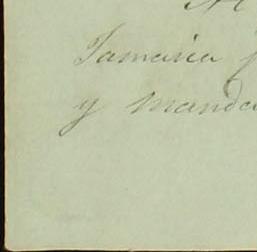 Jamaica
y manda